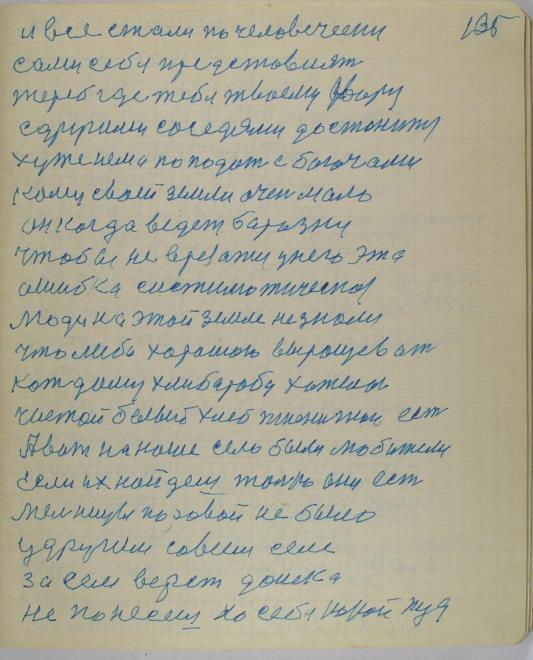 135
и все стали по человечески
сами себя представит
жереб где тебя твоему
с другими соседями достоиниу
хуже нема попадат с богочами
кому своей земли очен мало
он когда ведет баразну
чтобы не врезатжи у него эта
ошибка систиматическая
люди на этой земле не знали
что либа хорошою вырощеват
каждаму хлибаробу хотелос
чистой белый хлеб пшеничною ест
А вот на наше село были любители
если их найдеш толко они ест
мелницы поровой не было
у другим совсем селе
за сем верст доика
не понесеш на себя какой пуд